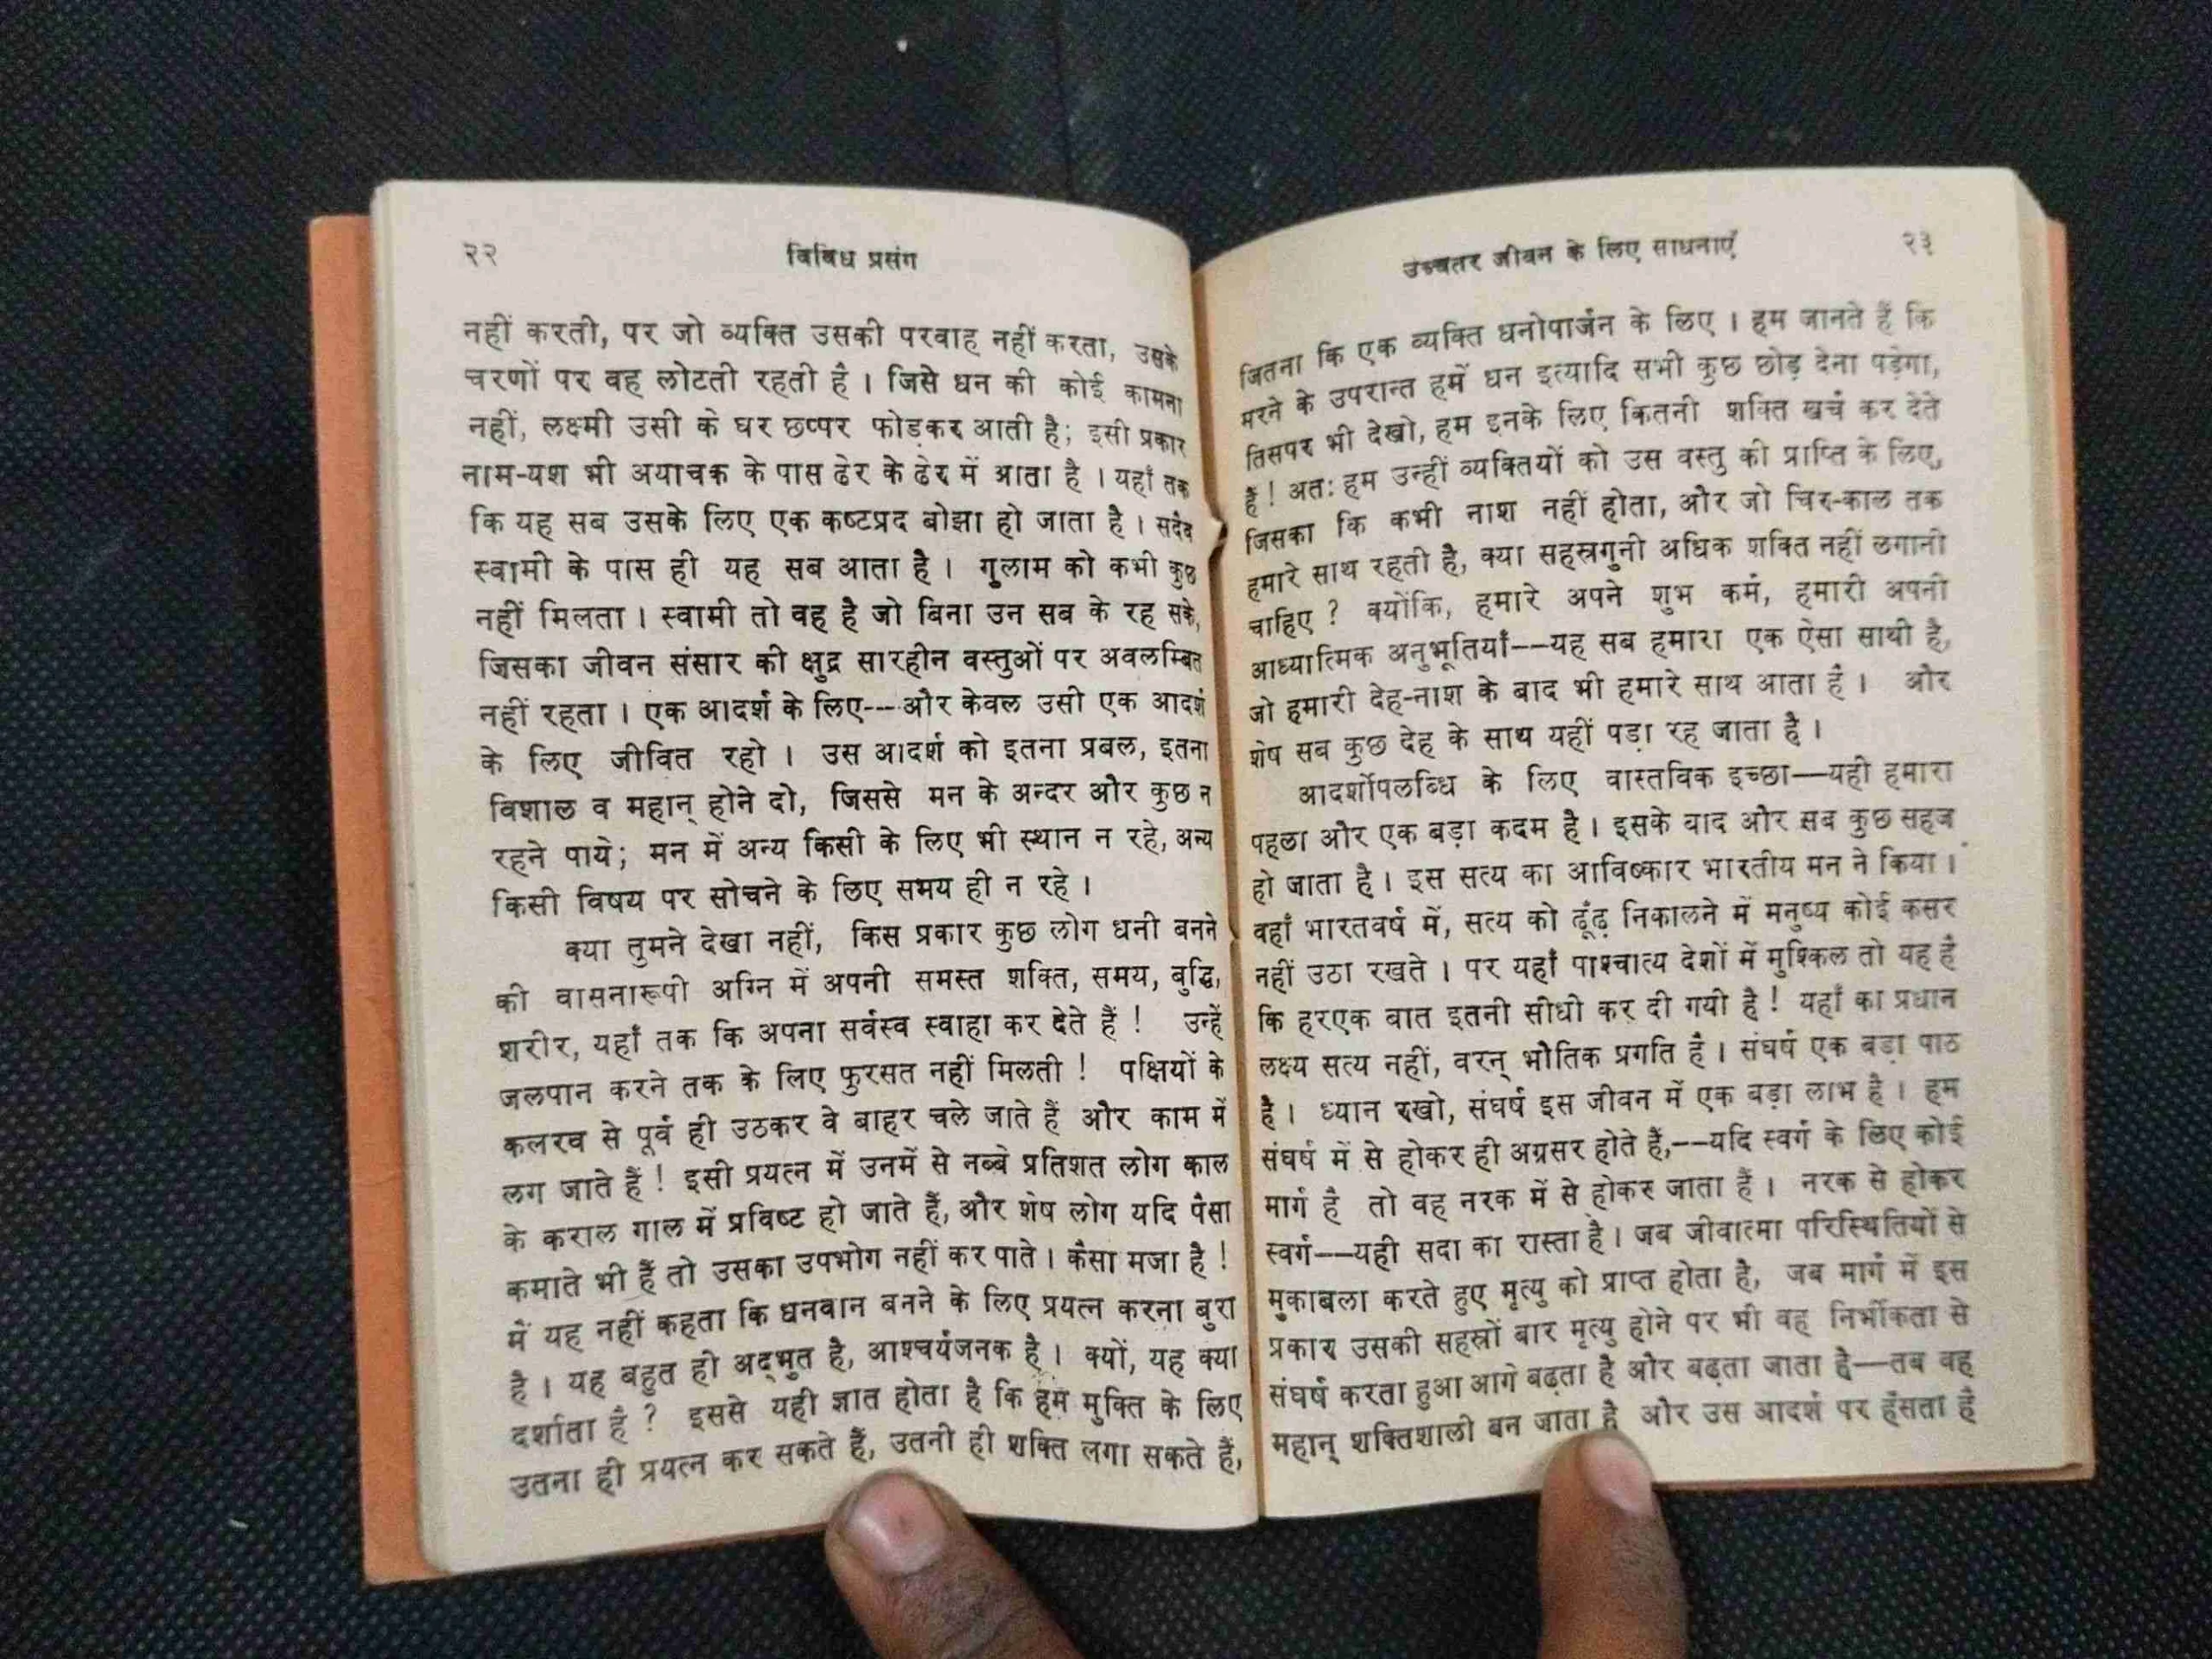 २२
विविध प्रसंग
नहीं करती, पर जो व्यक्ति उसकी परवाह नहीं करता, उसके
चरणों पर वह लोटती रहती है । जिसे धन की कोई कामना
नहीं, लक्ष्मी उसी के घर छप्पर फोड़कर आती है; इसी प्रकार
नाम-यश भी अयाचक के पास ढेर के ढेर में आता है । यहाँ तक
कि यह सब उसके लिए एक कष्टप्रद बोझा हो जाता है । सदैव
स्वामी के पास ही यह सब आता है । गुलाम को कभी कुछ
नहीं मिलता । स्वामी तो वह है जो बिना उन सब के रह सके,
जिसका जीवन संसार की क्षुद्र सारहीन वस्तुओं पर अवलम्बित
नहीं रहता । एक आदर्श के लिए---और केवल उसी एक आदर्श
के लिए जीवित रहो । उस आदर्श को इतना प्रबल, इतना
विशाल व महान् होने दो, जिससे मन के अन्दर और कुछ न
रहने पाये; मन में अन्य किसी के लिए भी स्थान न रहे, अन्य
किसी विषय पर सोचने के लिए समय ही न रहे ।
क्या तुमने देखा नहीं, किस प्रकार कुछ लोग धनी बनने
की वासनारूपी अग्नि में अपनी समस्त शक्ति, समय, बुद्धि,
शरीर, यहाँ तक कि अपना सर्वस्व स्वाहा कर देते हैं ! उन्हें
जलपान करने तक के लिए फुरसत नहीं मिलती ! पक्षियों के
कलरव से पूर्व ही उठकर वे बाहर चले जाते हैं और काम में
लग जाते हैं ! इसी प्रयत्न में उनमें से नब्बे प्रतिशत लोग काल
के कराल गाल में प्रविष्ट हो जाते हैं, और शेष लोग यदि पैसा
कमाते भी हैं तो उसका उपभोग नहीं कर पाते । कैसा मजा है !
मैं यह नहीं कहता कि धनवान बनने के लिए प्रयत्न करना बुरा
है । यह बहुत ही अद्भुत है, आश्चर्यजनक है । क्यों, यह क्या
दर्शाता है ? इससे यही ज्ञात होता है कि हम मुक्ति के लिए
उतना ही प्रयत्न कर सकते हैं, उतनी ही शक्ति लगा सकते हैं,
उच्चतर जीवन के लिए साधनाएँ
२३
जितना कि एक व्यक्ति धनोपार्जन के लिए । हम जानते हैं कि
मरने के उपरान्त हमें धन इत्यादि सभी कुछ छोड़ देना पड़ेगा,
तिसपर भी देखो, हम इनके लिए कितनी शक्ति खर्च कर देते
हैं ! अतः हम उन्हीं व्यक्तियों को उस वस्तु की प्राप्ति के लिए,
जिसका कि कभी नाश नहीं होता, और जो चिर-काल तक
हमारे साथ रहती है, क्या सहस्रगुनी अधिक शक्ति नहीं लगानी
चाहिए ? क्योंकि, हमारे अपने शुभ कर्म, हमारी अपनी
आध्यात्मिक अनुभूतियाँ--यह सब हमारा एक ऐसा साथी है,
जो हमारी देह-नाश के बाद भी हमारे साथ आता है । और
शेष सब कुछ देह के साथ यहीं पड़ा रह जाता है ।
आदर्शोपलब्धि के लिए वास्तविक इच्छा—यही हमारा
पहला और एक बड़ा कदम है । इसके बाद और सब कुछ सहज
हो जाता है । इस सत्य का आविष्कार भारतीय मन ने किया ।
वहाँ भारतवर्ष में, सत्य को ढूँढ़ निकालने में मनुष्य कोई कसर
नहीं उठा रखते । पर यहाँ पाश्चात्य देशों में मुश्किल तो यह है
कि हरएक बात इतनी सीधी कर दी गयी है ! यहाँ का प्रधान
लक्ष्य सत्य नहीं, वरन् भौतिक प्रगति है । संघर्ष एक बड़ा पाठ
है । ध्यान रखो, संघर्ष इस जीवन में एक बड़ा लाभ है । हम
संघर्ष में से होकर ही अग्रसर होते हैं,--यदि स्वर्ग के लिए कोई
मार्ग है तो वह नरक में से होकर जाता है । नरक से होकर
स्वर्ग—यही सदा का रास्ता है । जब जीवात्मा परिस्थितियों से
मुकाबला करते हुए मृत्यु को प्राप्त होता है, जब मार्ग में इस
प्रकार उसकी सहस्रों बार मृत्यु होने पर भी वह निर्भीकता से
संघर्ष करता हुआ आगे बढ़ता है और बढ़ता जाता है—तब वह
महान् शक्तिशाली बन जाता है और उस आदर्श पर हँसता है